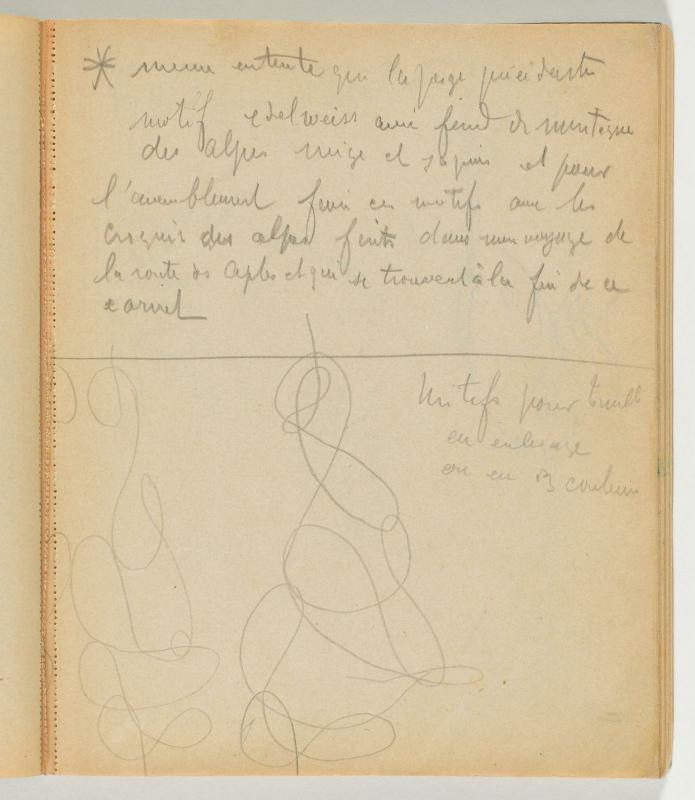 * meme entente que la page précédente
motif edelweiss avec fond de montagne
des alpes neige et sapins et pour
l'assemblement faire ces motifs avec les
croquis des alpes faits dans mon voyage de
la route des alpes et qui se trouvent à la fin de ce
carnet
Motifs pour
en
ou en 3 couleurs